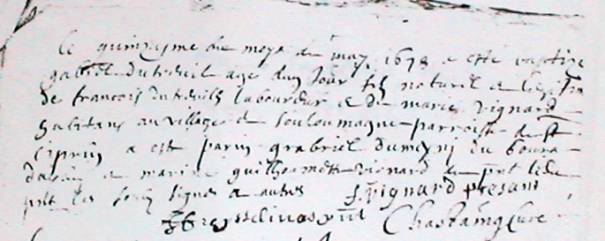 le quinzyme du moys de may 1678 a este baptize
gabriel duteuil age dun jour fils naturel et legitime
de francois duteuilh labourdur et de marie vignard
habitans au village de Touloumagne parroisse de St
Ciprin a est parin grabriel dumeyni du bourg
et marine guilhomette vignard
pnt les soubs signes et autres J. vignard presant
Chastaing cure